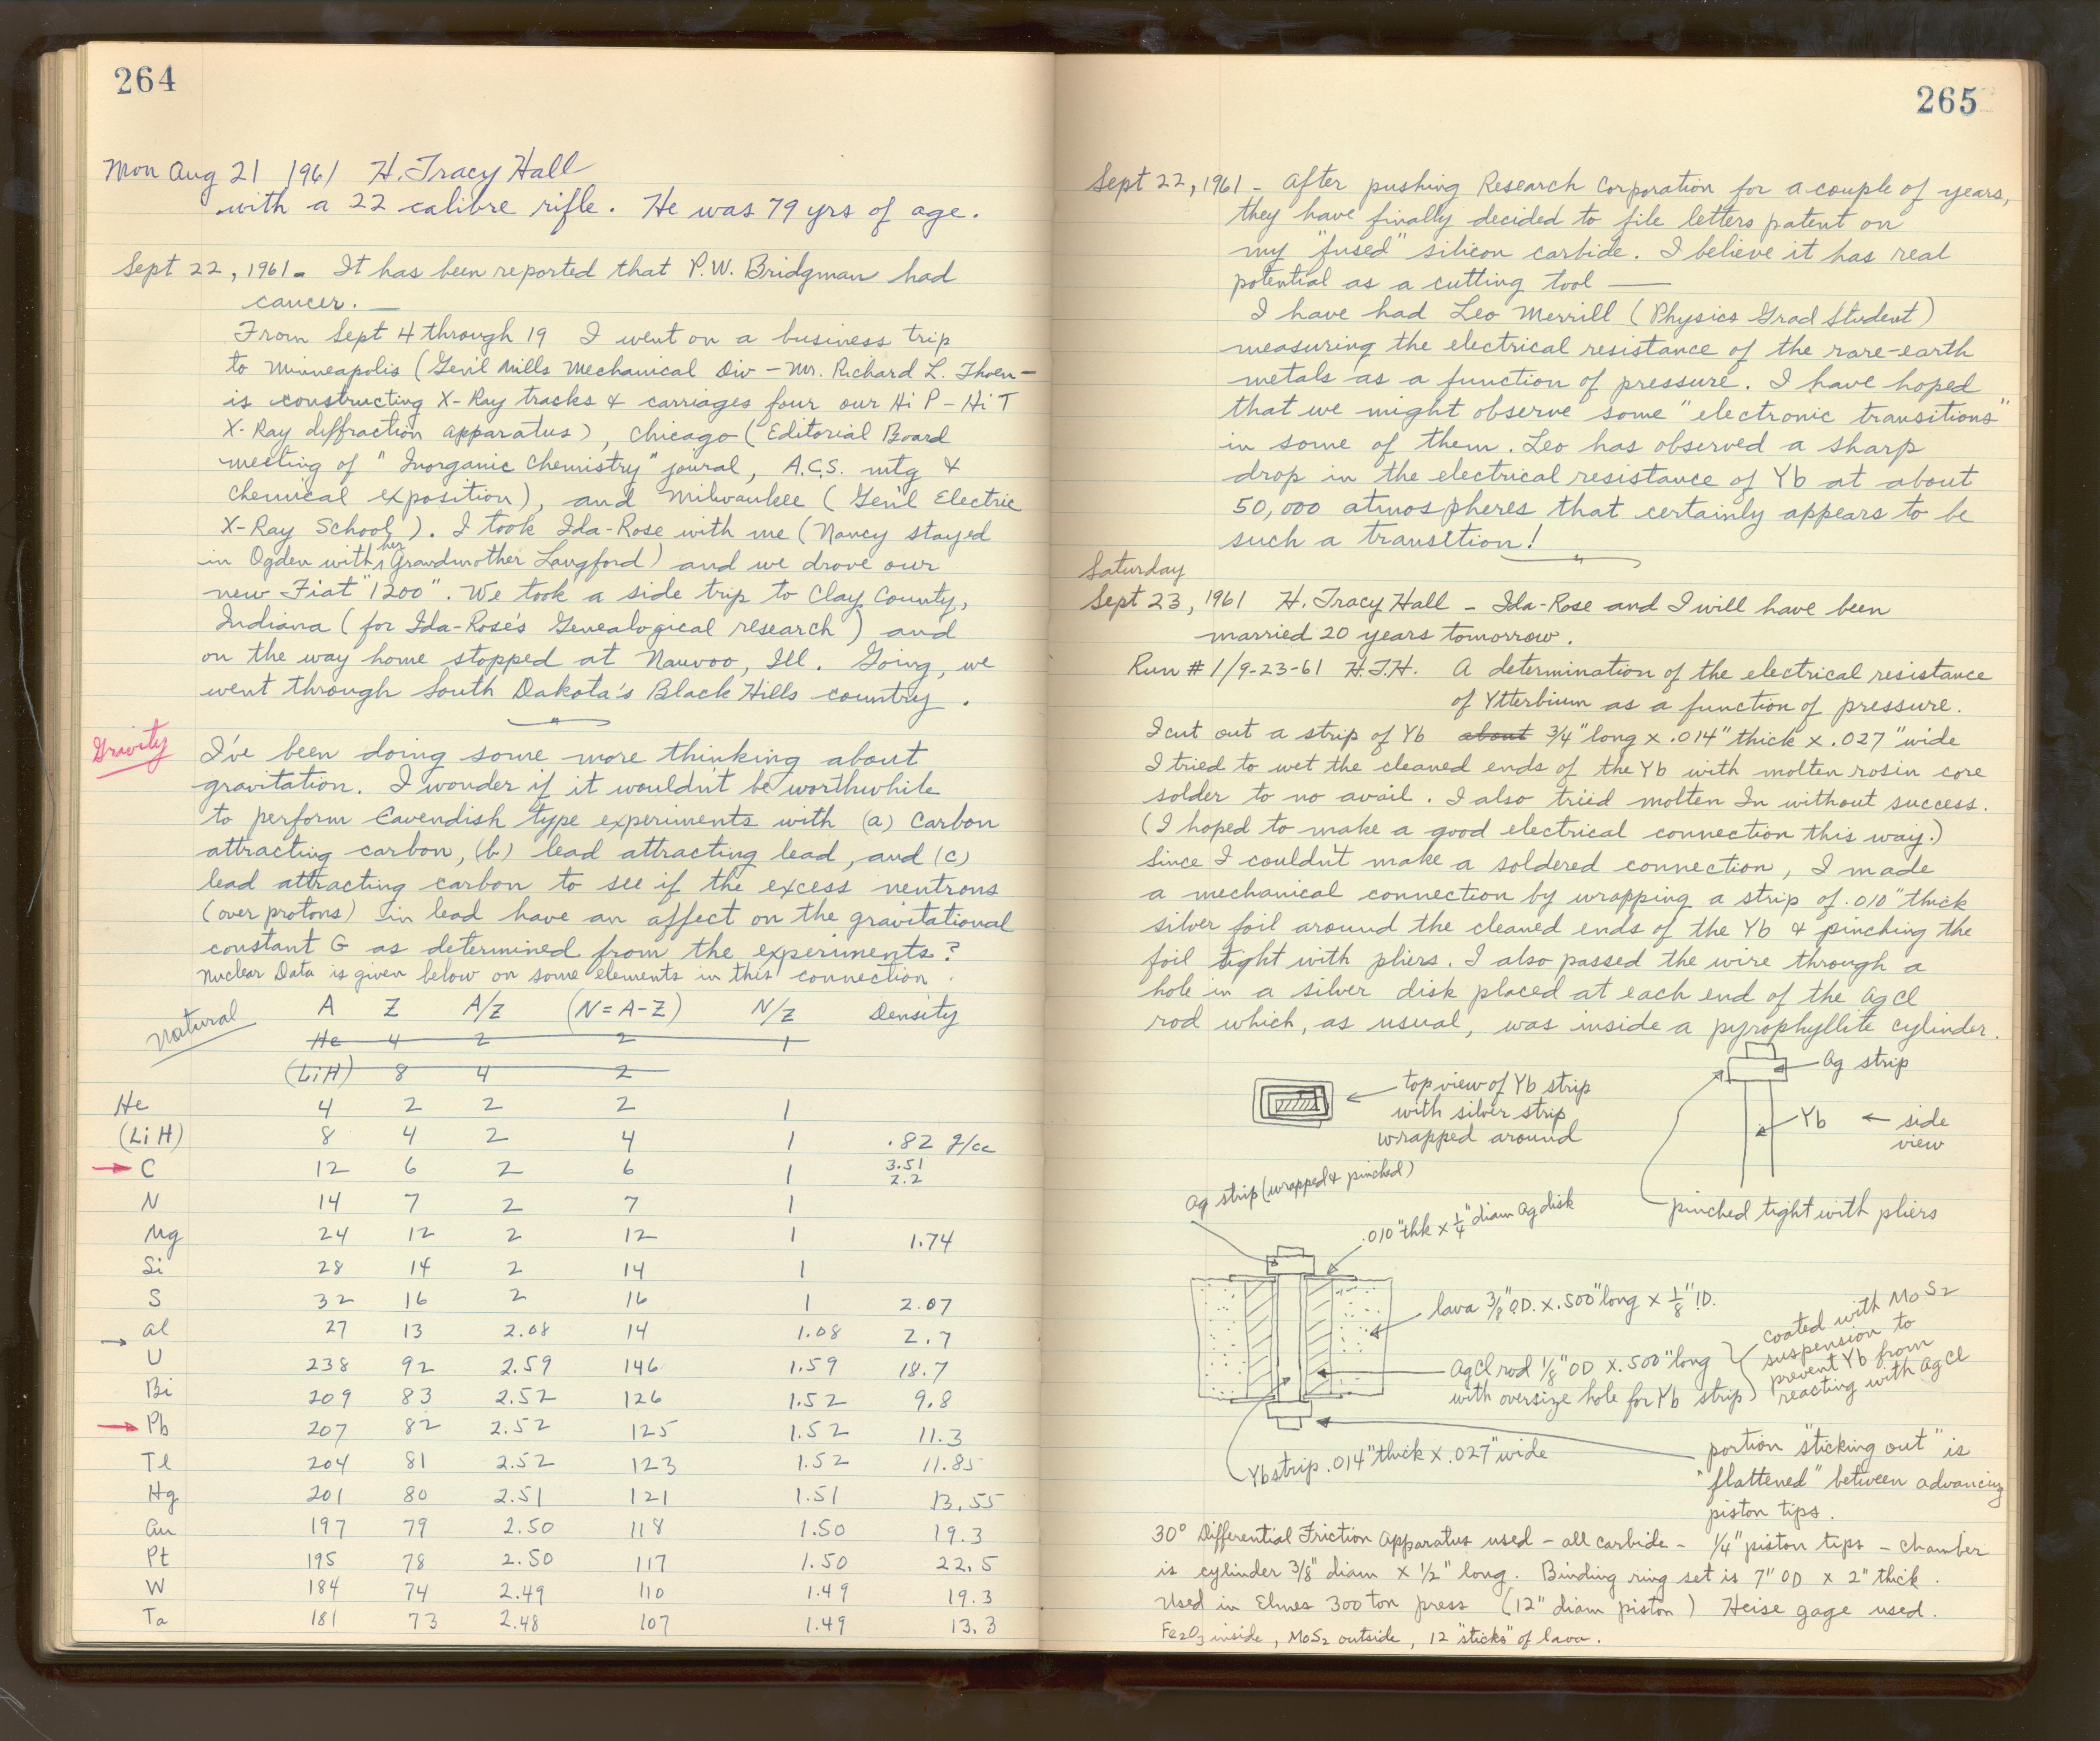 264
Mon Aug 21 1961 H. Tracy Hall
with a 22 calibre rifle. He was 79 yrs of age.
Sept 22, 1961. It has been reported that P.W. Bridgman had
cancer. —
From Sept 4 through 19 I went on a business trip
to Minneapolis (Gen'l Mills Mechanical Div – Mr. Richard L. Thoen –
is constructing X-Ray tracks & carriages four our Hi P – Hi T
X-Ray diffraction apparatus), Chicago (Editorial Board
meeting of "Inorganic Chemistry" joural, A.C.S. mtg &
Chemical exposition), and Milwaukee (Gen'l Electric
X-Ray School). I took Ida-Rose with me (Nancy stayed
in Ogden with her Grandmother Langford) and we drove our
new Fiat "1200". We took a side trip to Clay County,
Indiana (for Ida-Rose's Genealogical research) and
on the way home stopped at Nauvoo, Ill. Going, we
went through South Dakota's Black Hills country.
Gravity
I've been doing some more thinking about
gravitation. I wonder if it wouldn't be worthwhile
to perform Cavendish type experiments with (a) Carbon
attracting carbon, (b) lead attracting lead, and (c)
lead attracting carbon to see if the excess neutrons
(over protons) in lead have an affect on the gravitational
constant G as determined from the experiments?
Nuclear Data is given below on some elements in this connection.
Natural A Z A/Z (N=A-Z) N/Z Density
He 4 2 2 1
(LiH) 8 4 2
He 4 2 2 2 1
(LiH) 8 4 2 4 1 .82 g/cc
→ C 12 6 2 6 1 3.51
2.2
N 14 7 2 7 1
Mg 24 12 2 12 1 1.74
Si 28 14 2 14 1
S 32 16 2 16 1 2.07
→ Al 27 13 2.08 14 1.08 2.7
U 238 92 2.59 146 1.59 18.7
Bi 209 83 2.52 126 1.52 9.8
→ Pb 207 82 2.52 125 1.52 11.3
Tl 204 81 2.52 123 1.52 11.85
Hg 201 80 2.51 121 1.51 13.55
Au 197 79 2.50 118 1.50 19.3
Pt 195 78 2.50 117 1.50 22.5
W 184 74 2.49 110 1.49 19.3
Ta 181 73 2.48 107 1.49 13.3
265
Sept 22, 1961 – After pushing Research Corporation for a couple of years,
they have finally decided to file letters patent on
my "fused" silicon carbide. I believe it has real
potential as a cutting tool —
I have had Leo Merrill (Physics Grad Student)
measuring the electrical resistance of the rare-earth
metals as a function of pressure. I have hoped
that we might observe some "electronic transitions"
in some of them. Leo has observed a sharp
drop in the electrical resistance of Yb at about
50,000 atmospheres that certainly appears to be
such a transition!
Saturday
Sept 23, 1961 H. Tracy Hall – Ida-Rose and I will have been
married 20 years tomorrow.
Run # 1/9-23-61 H.T.H. A determination of the electrical resistance
of Ytterbium as a function of pressure.
I cut out a strip of Yb about 3/4" long x .014" thick x .027" wide
I tried to wet the cleaned ends of the Yb with molten rosin core
solder to no avail. I also tried molten In without success.
(I hoped to make a good electrical connection this way.)
Since I couldn't make a soldered connection, I made
a mechanical connection by wrapping a strip of .010" thick
silver foil around the cleaned ends of the Yb & pinching the
foil tight with pliers. I also passed the wire through a
hole in a silver disk placed at each end of the AgCl
rod which, as usual, was inside a pyrophyllite cylinder.
top view of Yb strip
with silver strip
wrapped around
Ag strip
Yb ← side
view
pinched tight with pliers
Ag strip (wrapped & pinched)
.010" thk x 1/4" diam Ag disk
lava 3/8" O.D. x .500" long x 1/8" I.D.
AgCl rod 1/8" OD x .500" long
with oversize hole for Yb strip
coated with MoS2
suspension to
prevent Yb from
reacting with AgCl
Yb strip .014" thick x .027" wide
portion "sticking out" is
"flattened" between advancing
piston tips.
30° Differential Friction Apparatus used – all carbide – 1/4" piston tips – chamber
is cylinder 3/8" diam x 1/2" long. Binding ring set is 7" OD x 2" thick.
Used in Elmes 300 ton press (12" diam piston) Heise gage used.
Fe2O3 inside, MoS2 outside, 12 "sticks" of lava.